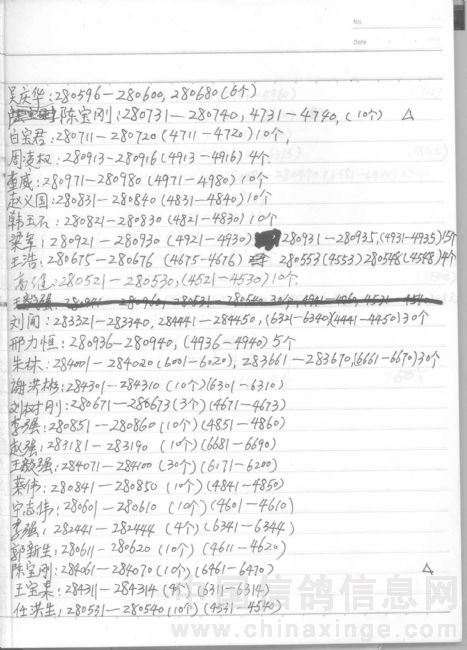 No.
Date
吴庆华:280596-280600, 280680(6个)
陈宝刚:280731-280740, 4731-4740, (10个) △
白宝君:280711-280720(4711-4720)10个,
周凌权:280913-280916(4913-4916)4个.
董威:280971-280980(4971-4980)10个
赵义国:280831-280840(4831-4840)10个
韩玉石:280821-280830(4821-4830)10个
梁军:280921-280930(4921-4930) 280931-280935,(4931-4935)15个
王浩:280675-280676(4675-4676) 280553(4553)280548(4548)4个
高健:280521-280530,(4521-4530)10个.
王毅强:280941-280960, 280531-280540 30个, 4941-4960, 4531-4540
刘闯:283321-283340, 284441-284450,(6321-6340)(4441-4450)30个
邢力恒:280936-280940,(4936-4940)5个
朱林:284001-284020(6001-6020),283661-283670,(6661-6670)30个
谢洪彬:284301-284310(10个)(6301-6310)
刘树刚:280671-280673(3个)(4671-4673)
李强:280851-280860(10个)(4851-4860)
赵强:283181-283190(10个)(6681-6690)
王毅强:284071-284100(30个)(6171-6200)
蔡伟:280841-280850(10个)(4841-4850)
宁志伟:280601-280610(10个)(4601-4610)
李强:282441-282444(4个)(6341-6344)
郭新生:280611-280620(10个)(4611-4620)
陈宝刚:284061-284070(10个)(6461-6470) △
王宝来:284311-284314(4个)(6311-6314)
任洪生:280531-280540(10个)(4531-4540)
中国信鸽信息网
www.chinaxinge.com